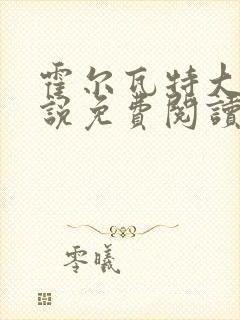 霍尔瓦特大
說免費閱讀
零曦